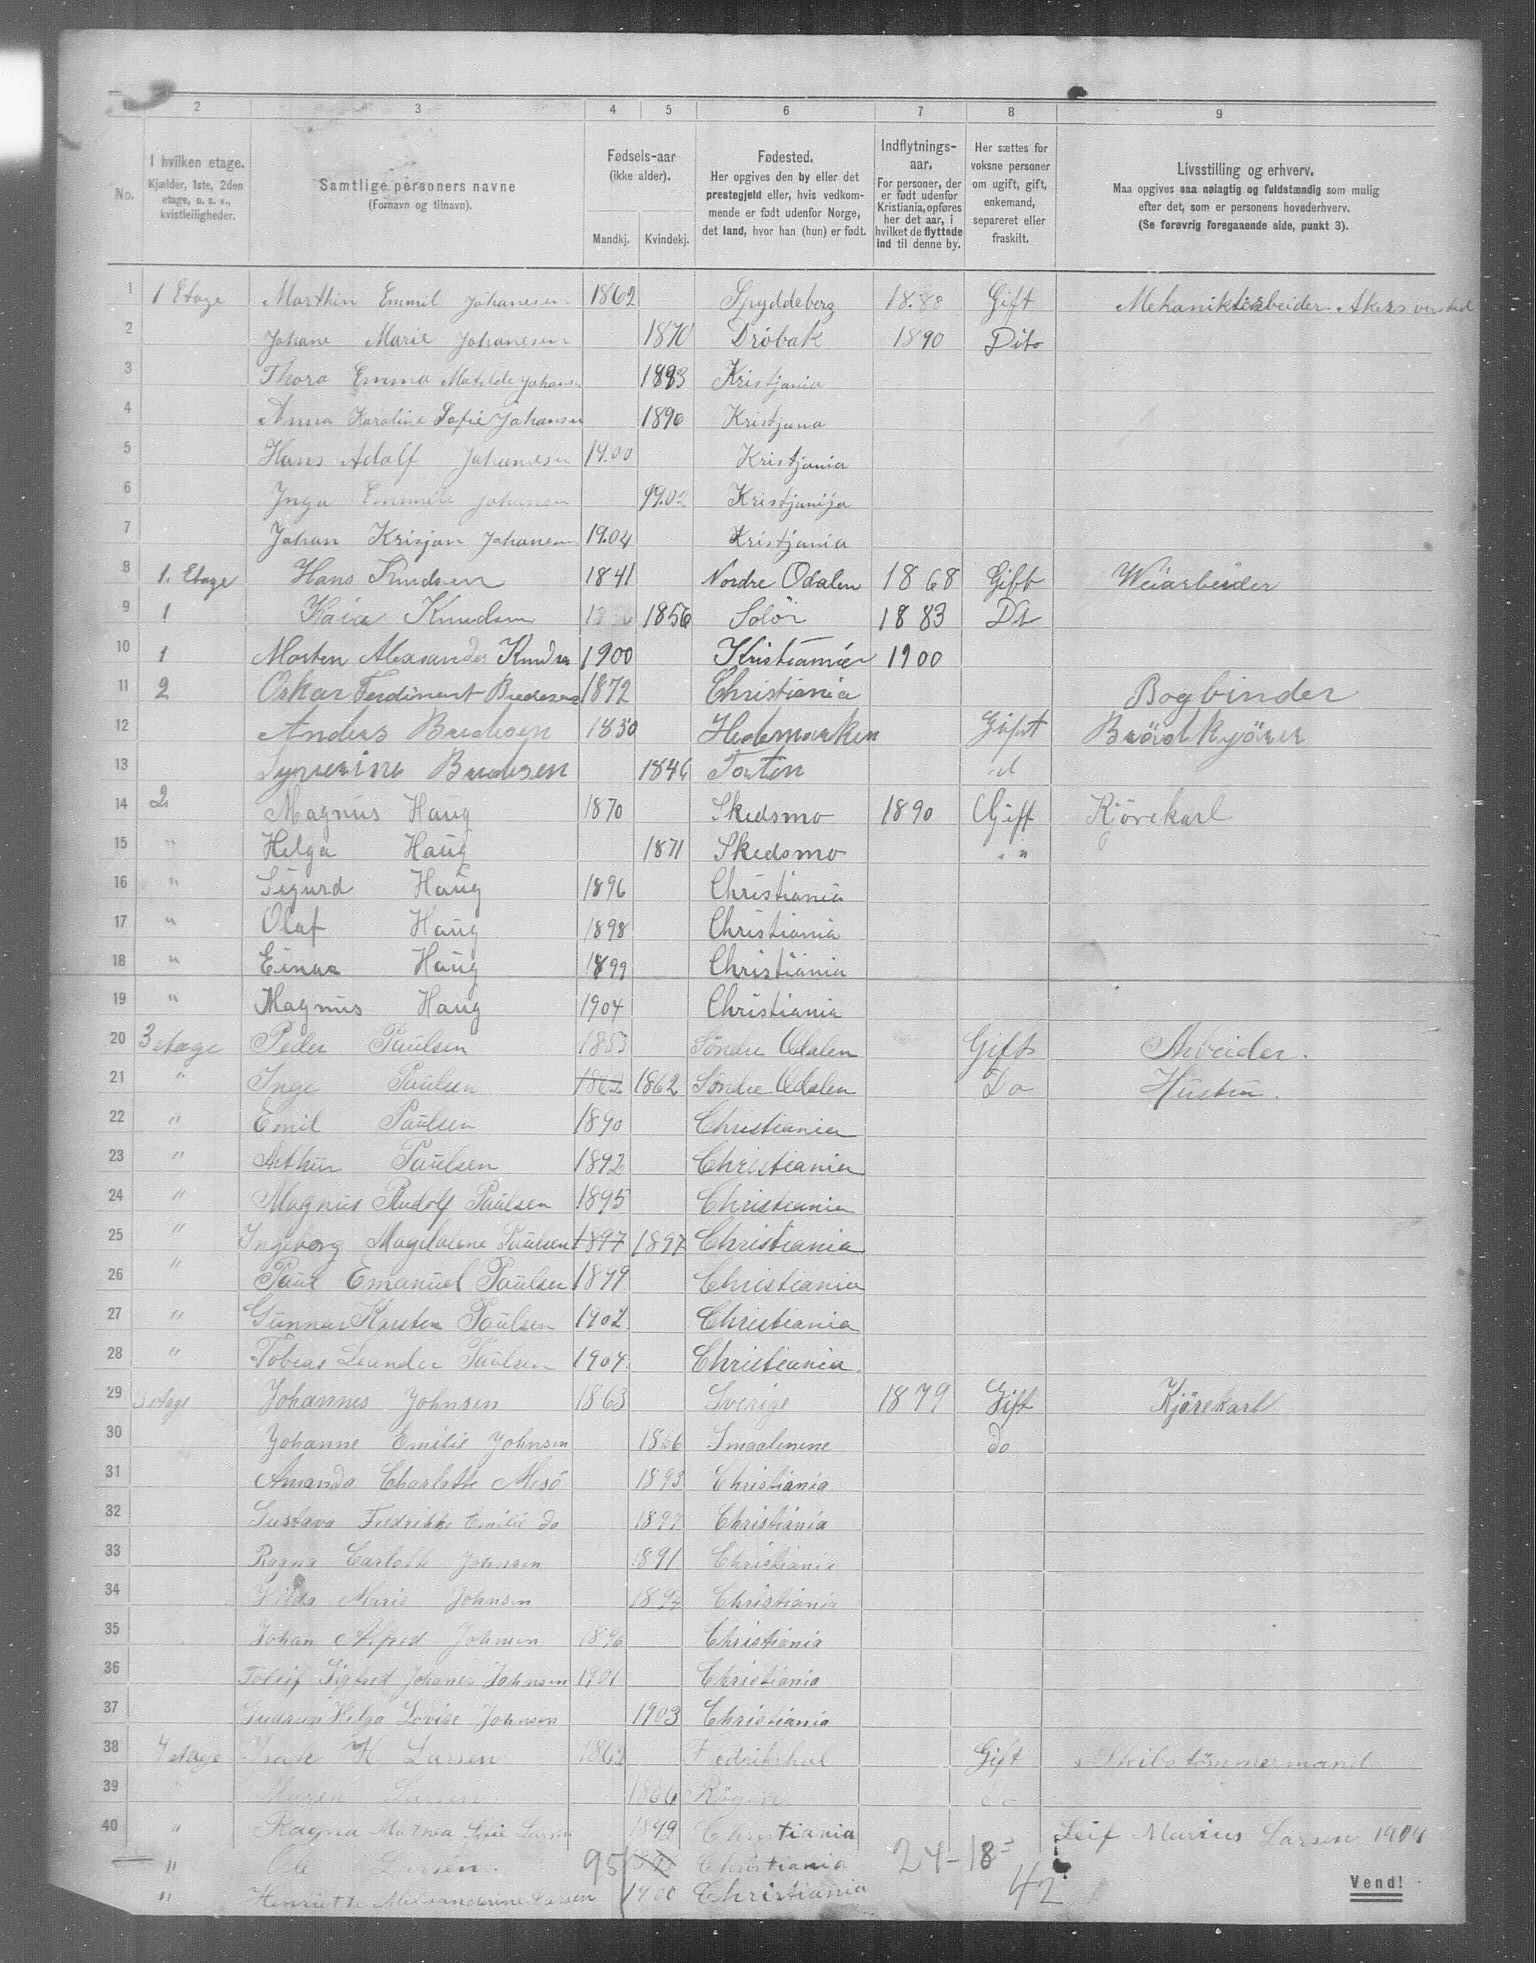 1 2 3 4 5 6 7 8 9
No. | I hvilken etage. Kjælder, 1ste, 2den etage, o. s. v., kvistleiligheder. | Samtlige personers navne (Fornavn og tilnavn). | Fødsels-aar (ikke alder). Mandkj. Kvindekj. | Fødested. Her opgives den by eller det prestegjeld eller, hvis vedkommende er født udenfor Norge, det land, hvor han (hun) er født. | Indflytnings-aar. For personer, der er født udenfor Kristiania, opføres her det aar, i hvilket de flyttede ind til denne by. | Her sættes for voksne personer om ugift, gift, enkemand, separeret eller fraskilt. | Livsstilling og erhverv. Maa opgives saa nøiagtig og fuldstændig som mulig efter det, som er personens hovederhverv. (Se forøvrig foregaaende side, punkt 3).
1 1 Etage Marthin Emmil Johanesen 1862 Spyddeberg 18.88 Gift Mekanikkerarbeider. Akers
2 Johane Marie Johanesen 1870 Dröbak 1890 Dito
3 Thora Emma Matilde Johans 1893 Kristjania
4 Anna Karoline Sofie Johansen 1896 Kristjana
5 Hans Adolf Johanesen 19.00 Kristjania
6 Inga Emmilie Johansen 19.02 Kristjanija
7 Johan Krisjan Johanesen 19.04 Kristjania
8 1. Etage Hans Knudsen 1841 Nordre Odalen 1868 Gift Weiarbeider
9 1 Kaia Knudsen 1856 Solör 1883 Do
10 1 Morten Alexsander Knudsen 1900 Kristiania 1900
11 2 Oskar Ferdinant Bredesen 1872 Christiania Bogbinder
12 Anders Bredesen 1850 Hedemarken Gift Brödkjörer
13 Syverine Bredesen 1846 Toten
14 2 Magnus Haug 1870 Skedsmo 1890 Gift Kjörekarl
15 " Helga Haug 1871 Skedsmo "
16 " Sigurd Haug 1896 Christiania
17 " Olaf Haug 1898 Christiania
18 " Einar Haug 1899 Christiania
19 " Magnus Haug 1904 Christiania
20 3 etage Peder Paulsen 1853 Söndre Odalen Gift Arbeider.
21 " Inge Paulsen 1862 1862 Söndre Odalen Do Hustru.
22 " Emil Paulsen 1890 Christiania
23 " Arthur Paulsen 1892 Christiania
24 " Magnus Rudolf Paulsen 1895 Christiania
25 " Ingeborg Magdalene Paulsen 1897 1897 Christiania
26 " Paul Emanuel Paulsen 1899 Christiania
27 " Gunnar Karsten Paulsen 1902 Christiania
28 " Tobias Leander Paulsen 1904 Christiania.
29 3 etage Johannes Johnsen 1863 Sverige 1879 Gift Kjørekarl
30 Johanne Emilie Johnsen 1866 Smaalenene do
31 Amanda Charlotte 1893 Christiania
32 Gustava Fredrikke Emilie do 1897 Christiania
33 Ragna Carlotte Johnsen 1891 Christiania
34 Hilda Marie Johnsen 1894 Christiania
35 Johan Alfred Johnsen 1896 Christiania
36 Toleif Sigfred Johanes Johnsen 1901 Christiania
37 Gudrun Helga Lovise Johnsen 1903 Christiania
38 4 etage Isak H Larsen Fredrikshal Gift Skibstömmermand
39 " Maren Larsen 1866 Rögen do
40 " Ragna Mathea Sofie Larsen 1892 Christiania Leif Marius Larsen 1904
" Ole Larsen. 95 Christiania 24-18=42
" Henriette Alexsanderine Larsen 1900 Christiania
Vend!